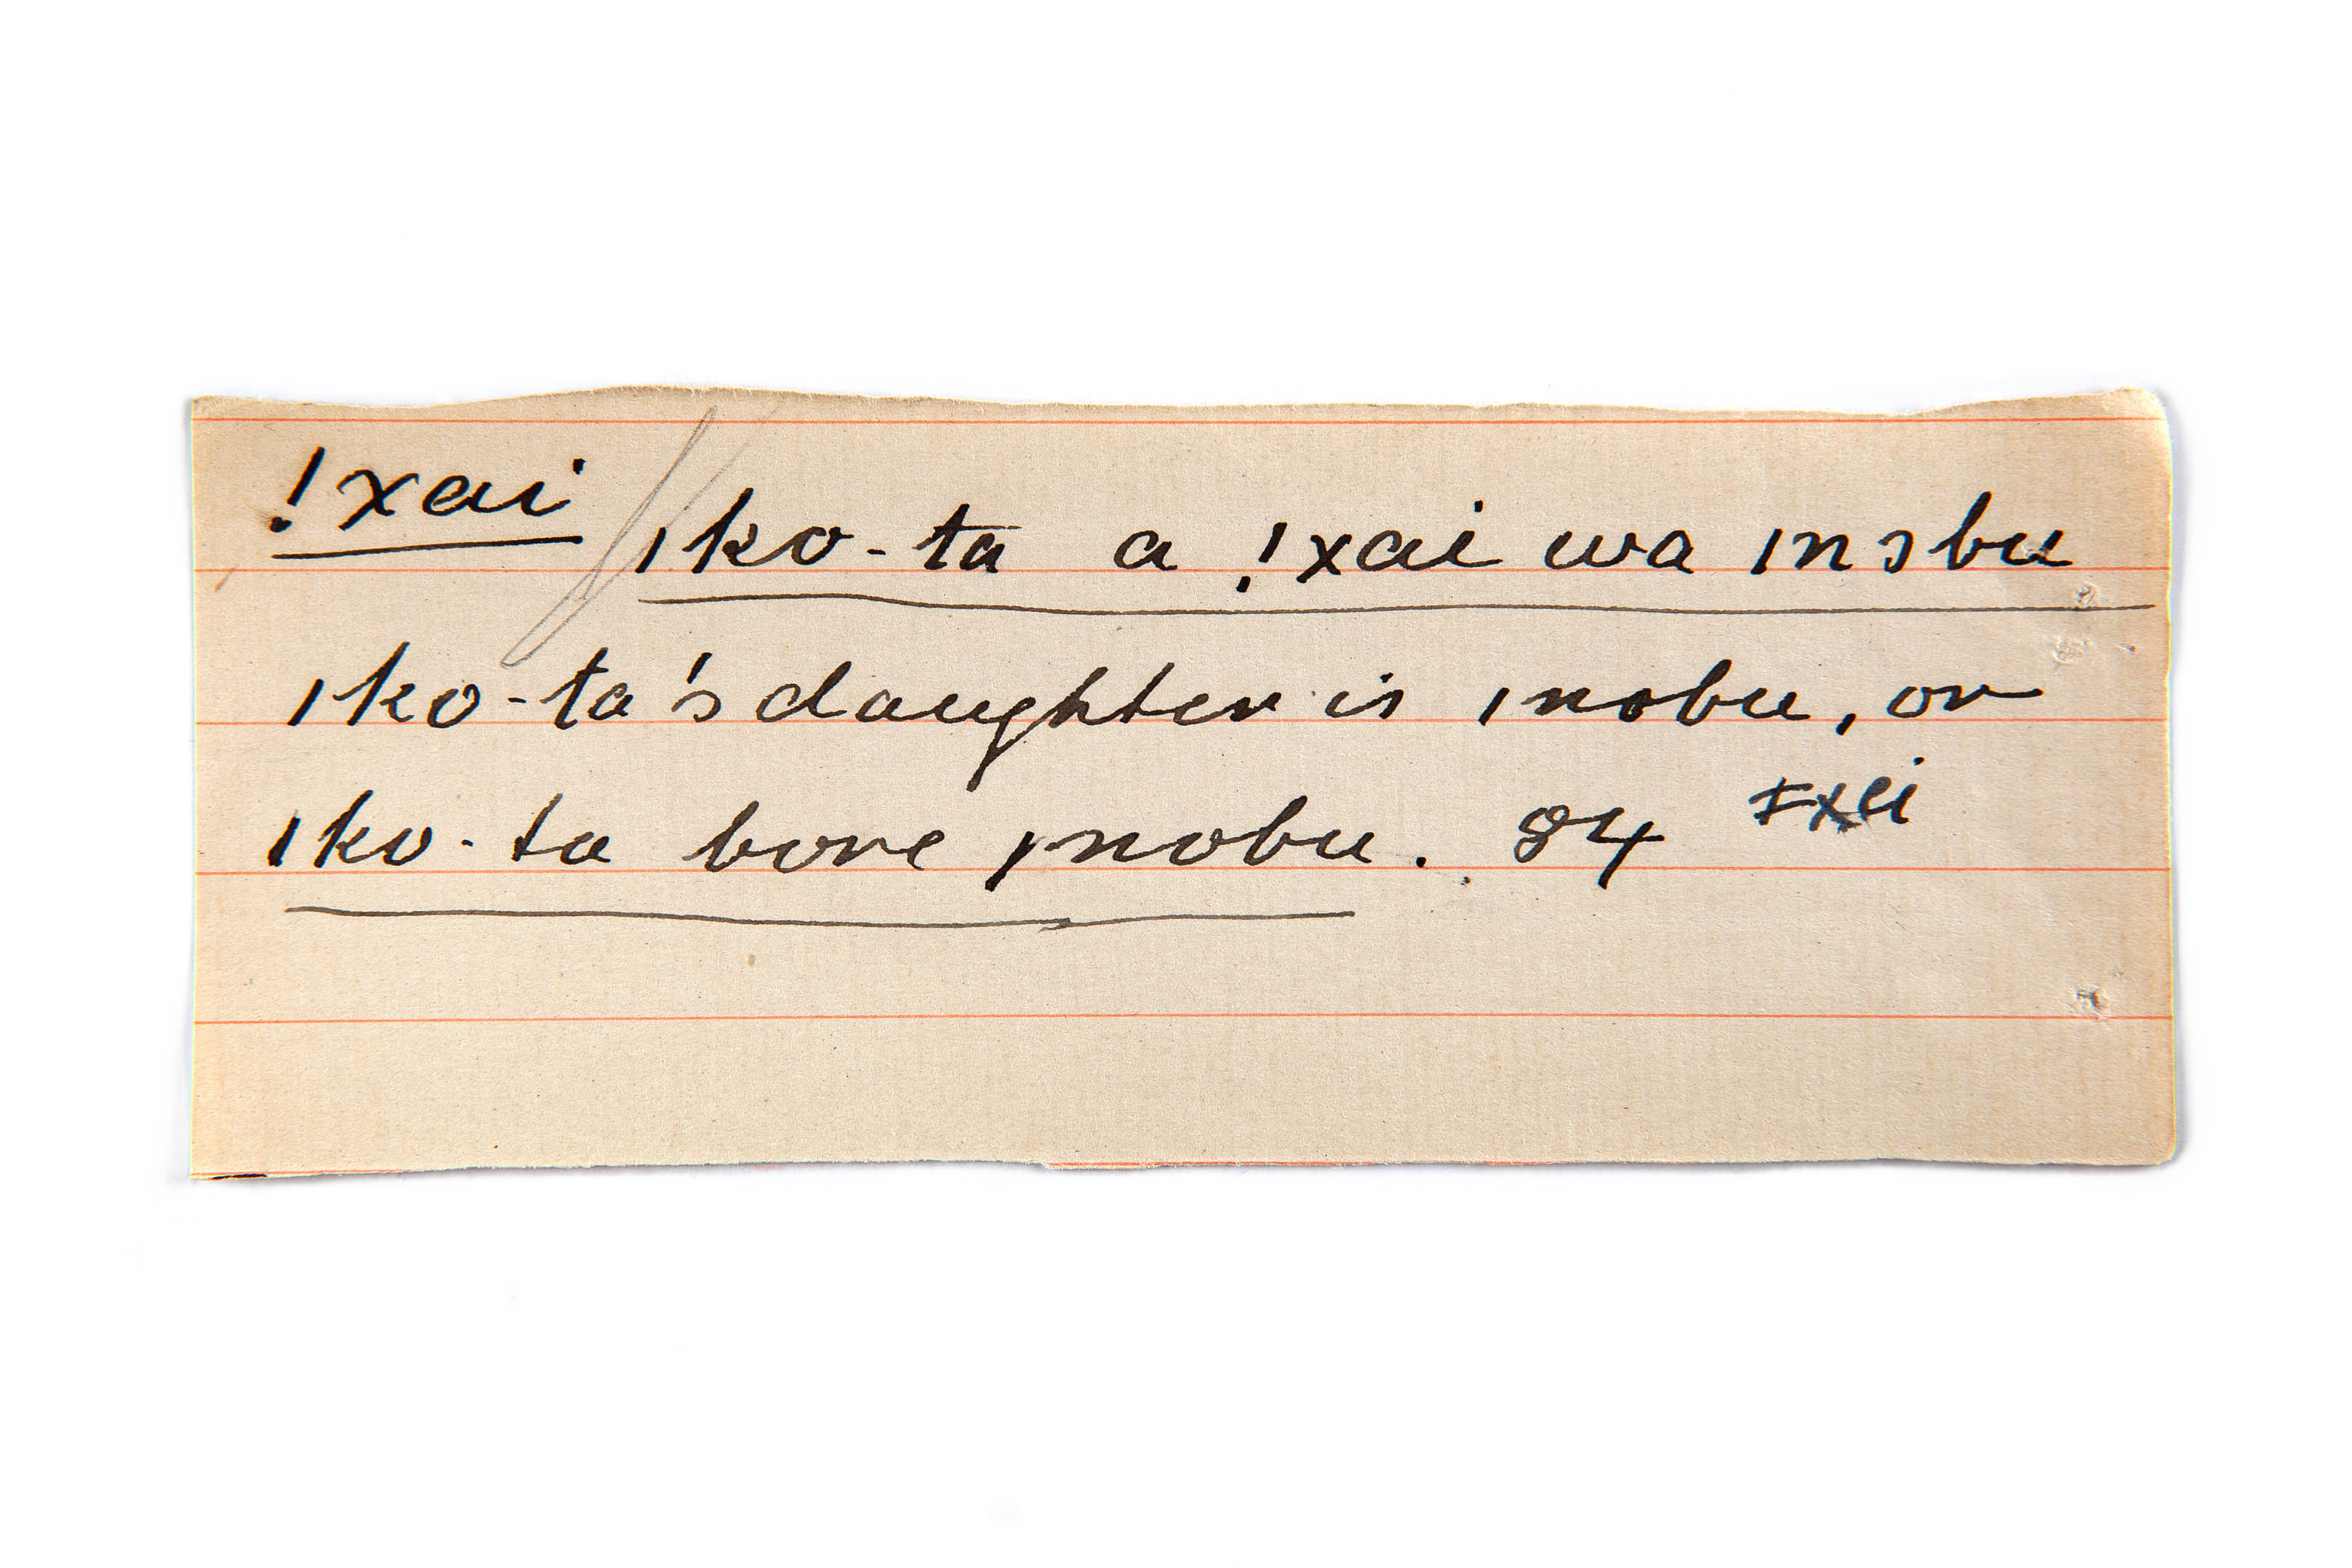 !xai ǀko-ta a !xai wa ǀnɔbu
ǀko-ta's daughter is ǀnobu, or
ǀko-ta bore ǀnobu. 84 ǂxai